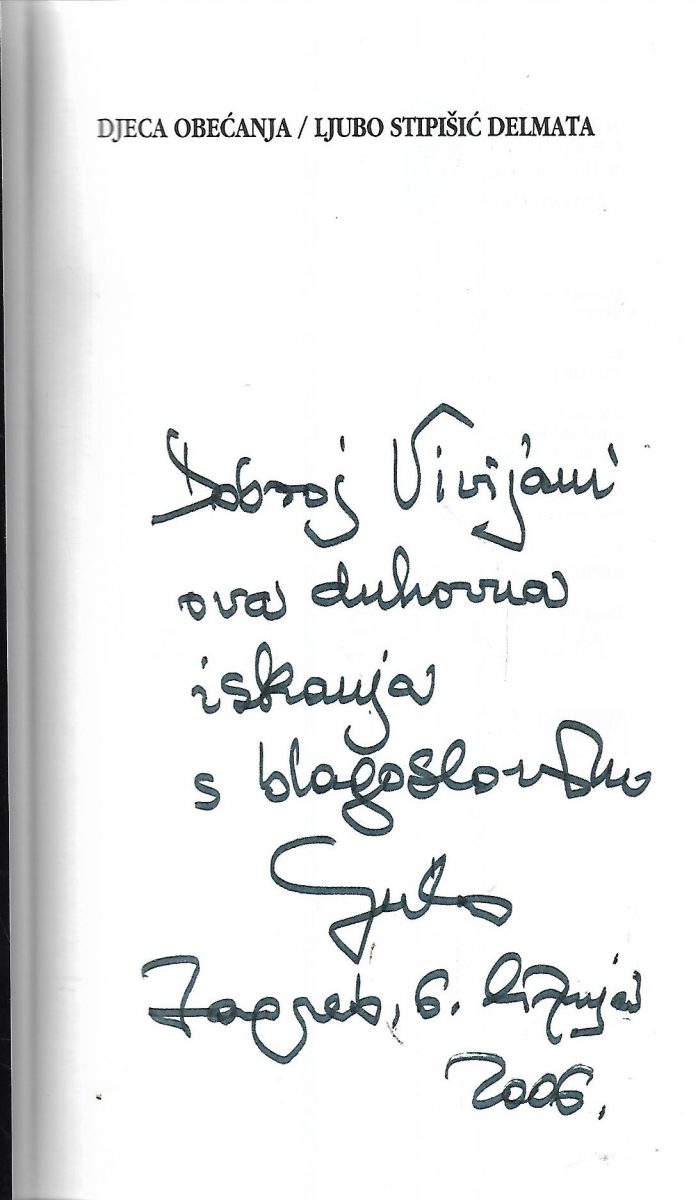 DJECA OBEĆANJA / LJUBO STIPIŠIĆ DELMATA
Dobroj Vivijani
ova duhovna
iskanja
s blagoslovom
Ljubo
Zagreb, 6. lipnja
2006.